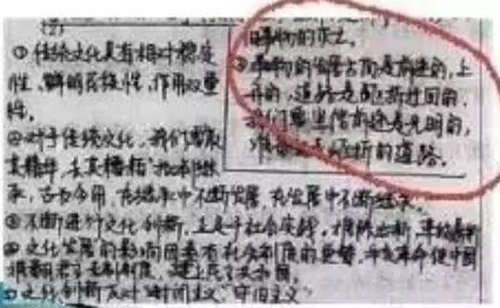 旧事物的灭亡
①传统文化具有相对稳定
性、鲜明民族性,作用双重
性。
事物的发展方向是前进的,上
升的,道路是曲折迂回的,
我们要坚信前途是光明的,
曲折的道路。
②对于传统文化,我们要取
其精华,去其糟粕,批判继
承,古为今用,在继承中不断发展,在发展中不断继承。
③不断进行文化创新,立足于社会实践,推陈出新,革故鼎新
④文化发展的影响因素有社会制度的更替,
⑤文化创新反对"封闭主义""守旧主义"